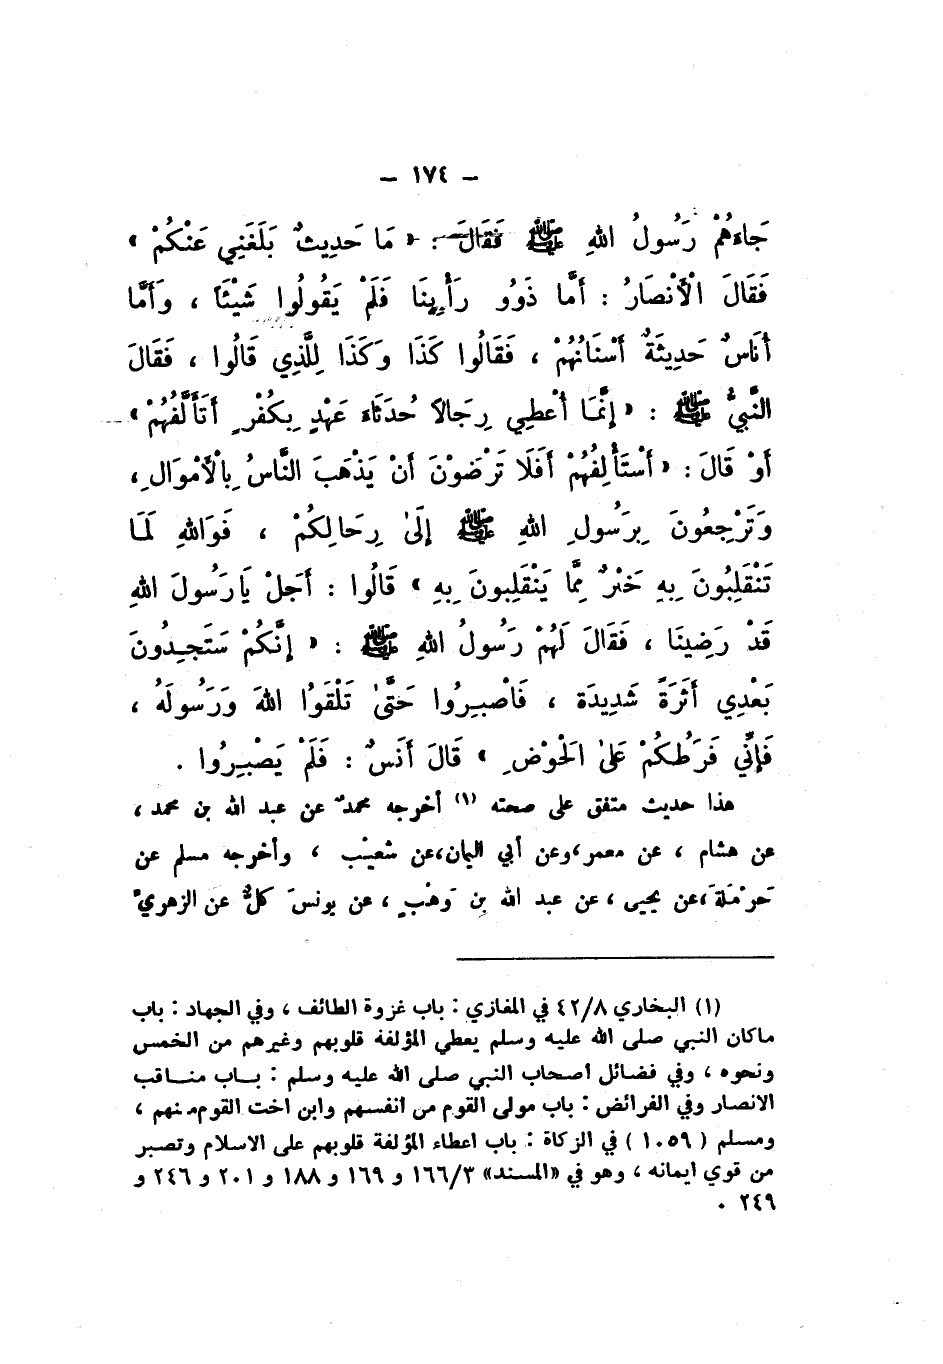 – ١٧٤ –
جَاءَهُمْ رَسُولُ اللهِ ﷺ فَقَالَ : « مَا حَدِيثٌ بَلَغَنِي عَنْكُمْ »
فَقَالَ الْأَنْصَارُ : أَمَّا ذَوُو رَأْيِنَا فَلَمْ يَقُولُوا شَيْئًا ، وَأَمَّا
أُنَاسٌ حَدِيثَةٌ أَسْنَانُهُمْ ، فَقَالُوا كَذَا وَكَذَا لِلَّذِي قَالُوا ، فَقَالَ
النَّبِيُّ ﷺ : « إِنَّمَا أُعْطِي رِجَالاً حُدَثَاءَ عَهْدٍ بِكُفْرٍ أَتَأَلَّفُهُمْ »
أَوْ قَالَ : « أَسْتَأْلِفُهُمْ أَفَلَا تَرْضَوْنَ أَنْ يَذْهَبَ النَّاسُ بِالْأَمْوَالِ ،
وَتَرْجِعُونَ بِرَسُولِ اللهِ ﷺ إِلَىٰ رِحَالِكُمْ ، فَوَاللهِ لَمَا
تَنْقَلِبُونَ بِهِ خَيْرٌ مِمَّا يَنْقَلِبُونَ بِهِ » قَالُوا : أَجَلْ يَا رَسُولَ اللهِ
قَدْ رَضِينَا ، فَقَالَ لَهُمْ رَسُولُ اللهِ ﷺ : « إِنَّكُمْ سَتَجِدُونَ
بَعْدِي أَثَرَةً شَدِيدَة ، فَاصْبِرُوا حَتَّىٰ تَلْقَوُا اللهَ وَرَسُولَهُ ،
فَإِنِّي فَرَطُكُمْ عَلَىٰ الْحَوْضِ » قَالَ أَنَسٌ : فَلَمْ يَصْبِرُوا .
هذا حديث متفق على صحته (١) أخرجه محمدٌ عن عبد الله بن محمد ،
عن هشام ، عن معمر ، وعن أبي اليمان ، عن شعيْب ، وأخرجه مسلم عن
حَرْمَلَةَ ، عن يحيى ، عن عبد الله بنِ وَهْبٍ ، عن يونسَ كلٌّ عن الزهريِّ
(١) البخاري ٤٢/٨ في المغازي : باب غزوة الطائف ، وفي الجهاد : باب
ماكان النبي صلى الله عليه وسلم يعطي المؤلفة قلوبهم وغيرهم من الخمس
ونحوه ، وفي فضائل اصحاب النبي صلى الله عليه وسلم : بـاب منـاقب
الانصار وفي الفرائض : باب مولى القوم من انفسهم وابن اخت القوم منهم ،
ومسلم ( ١٠٥٩ ) في الزكاة : باب اعطاء المؤلفة قلوبهم على الاسلام وتصبر
من قوي ايمانه ، وهو في «المسند» ١٦٦/٣ و ١٦٩ و ١٨٨ و ٢٠١ و ٢٤٦ و
٢٤٩ .